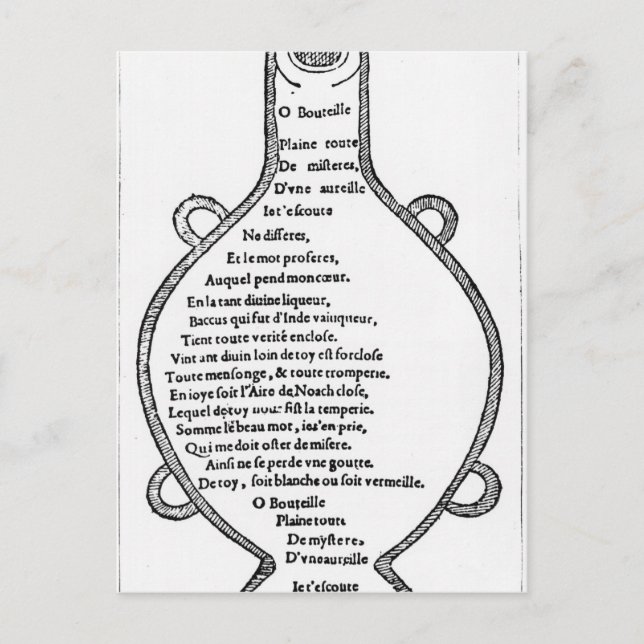 O Bouteille
Plaine toute
De miſteres,
D'vne aureille
Ie t'eſcoute
Ne differes,
Et le mot proferes,
Auquel pend mon cœur.
En la tant diuine liqueur,
Baccus qui fut d'Inde vainqueur,
Tient toute verité encloſe.
Vint ant diuin loin de toy eſt forcloſe
Toute menſonge, & toute tromperie.
En ioye ſoit l'Aire de Noach cloſe,
Lequel de toy nous fiſt la temperie.
Somme le beau mot, ie t'en prie,
Qui me doit oſter de miſere.
Ainſi ne ſe perde vne goutte.
De toy, ſoit blanche ou ſoit vermeille.
O Bouteille
Plaine toute
De myſteres
D'vne aureille
Ie t'eſcoute